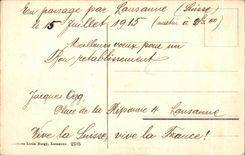 En passage par Lausanne (Suisse)
le 15 Juillet 1915 (matin à
Meilleurs voeux pour un
Bon retablissement
Jacques Ogg
Place de la Riponne 4 Lausanne
Vive la Suisse, vive la France!
Louis Burgy, Lausanne 2505